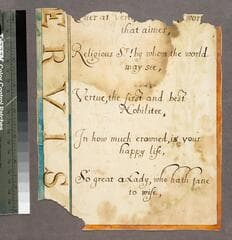 that aimes,
Religious Sr. by whom the world
may see,
Vertue, the first and best
Nobilitee,
In how much crowned, is your
happy life,
So great a Lady, who hath tane
to wife,
ERVIS
Color Control Patches